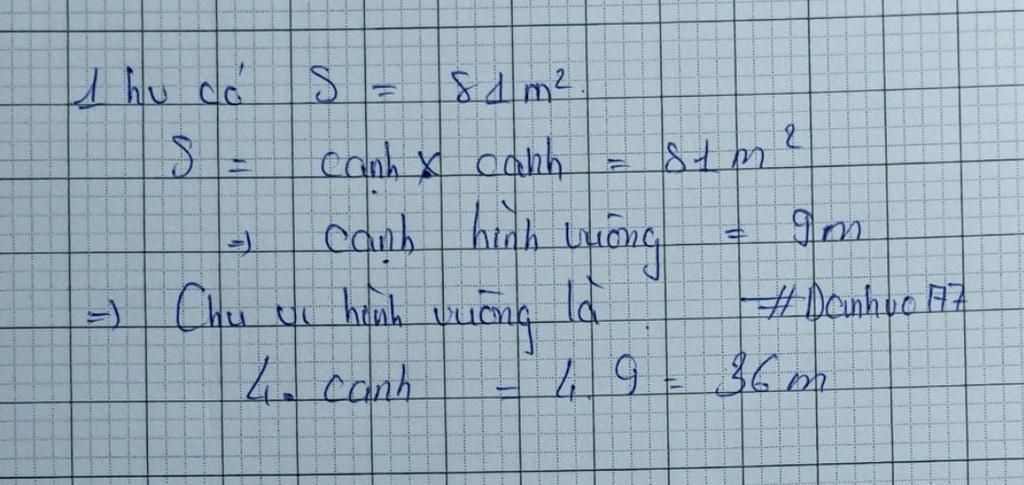 1 hv có S = 81 m².
S = cạnh x cạnh = 81 m²
=> cạnh hình vuông = 9m
=> Chu vi hình vuông là : #Danhvo A7
4. cạnh = 4. 9 = 36 m